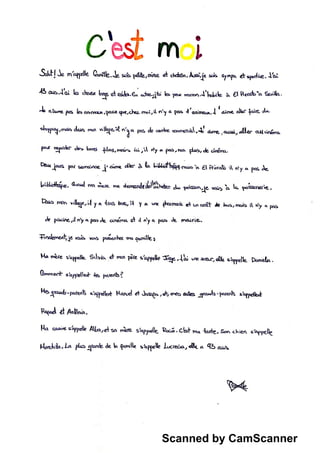 C'est moi
Salut! Je m'appelle Camille. Je suis petite, mince et châtain. Aussi, je suis sympa et sportive. J'ai
15 ans. J'ai les cheveux longs et. En outre, j'ai les yeux marron. J'habite à El à Seville.
Je n'aime pas les animaux, parce que, chez moi, il n'y a pas d'animaux. J'aime aller faire du
shopping, mais dans mon village, il n'y a pas de centre commercial. J'aime, aussi, aller au cinéma
pour regarder des bons films, mais ici, il n'y a pas, non plus, de cinéma.
Deux jours par semaine j'aime aller à la bibliothèque mais à El il n'y a pas de
bibliothèque. Quand ma mère me demande d'acheter du poisson, je vais à la poissonerie.
Dans mon village, il y a trois bus, il y a une pharmacie et un arrêt de bus, mais il n'y a pas
de piscine, il n'y a pas de cinéma et il n'y a pas de mairie.
Finalement, je vais vous présenter ma famille:
Ma mère s'appelle Silvia et mon père s'appelle Jorge. J'ai une sœur, elle s'appelle Daniela.
Comment s'appellent tes parents?
Mes grands-parents s'appellent Manuel et, et mes autres grands-parents s'appellent
Raquel et
Ma cousine s'appelle Alba, et sa mère s'appelle Rocío. C'est ma tante. Son chien s'appelle
La plus grande de la famille s'appelle Lucrecia, elle a 95 ans.
Scanned by CamScanner